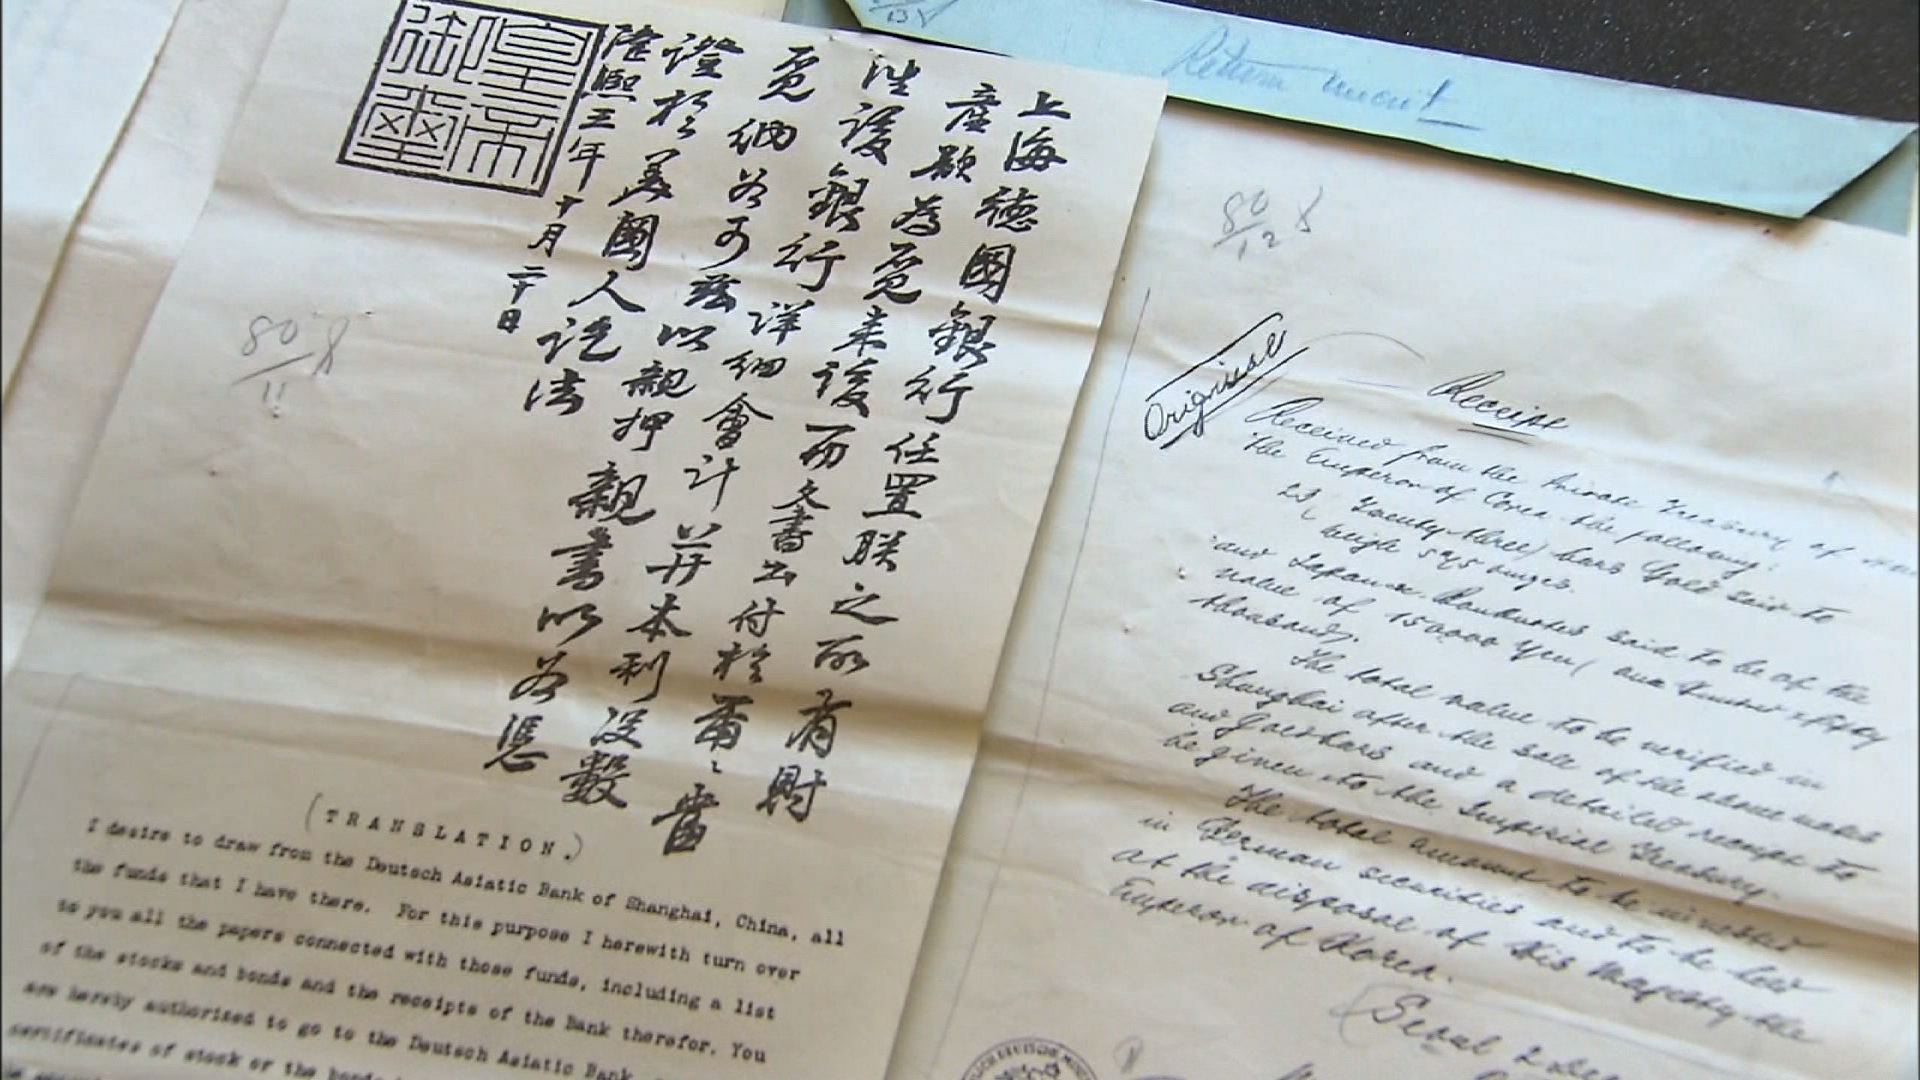 上海德國銀行任置朕之所有財
產款為覓來後而文書出付於爾〻當
往該銀行詳細會計并本利沒數
覓納為可玆以親押親書以為憑
證於美國人訖法
隆熙三年十月二十日
皇帝
御璽
80/11 8
(TRANSLATION.)
I desire to draw from the Deutsch Asiatic Bank of Shanghai, China, all
the funds that I have there. For this purpose I herewith turn over
to you all the papers connected with those funds, including a list
of the stocks and bonds and the receipts of the Bank therefor. You
are hereby authorized to go to the Deutsch Asiatic Bank,
certificates of stock or the bonds
Return
80/12 8
Original
Receipt
Received from the Private Treasury of
the Emperor of Corea the following:
23 (Twenty three) bars Gold said to
weigh 595 ounzes.
and Japanese Banknotes said to be of the
value of 150000 Yen (one hundred & fifty
thousand).
The total value to be verified in
Shanghai after the sale of the above notes
and goldbars and a detailed receipt to
be given to the Imperial Treasury.
The total amount to be invested
in German securities and to be held
at the disposal of His Majesty the
Emperor of Korea.
Seoul 2